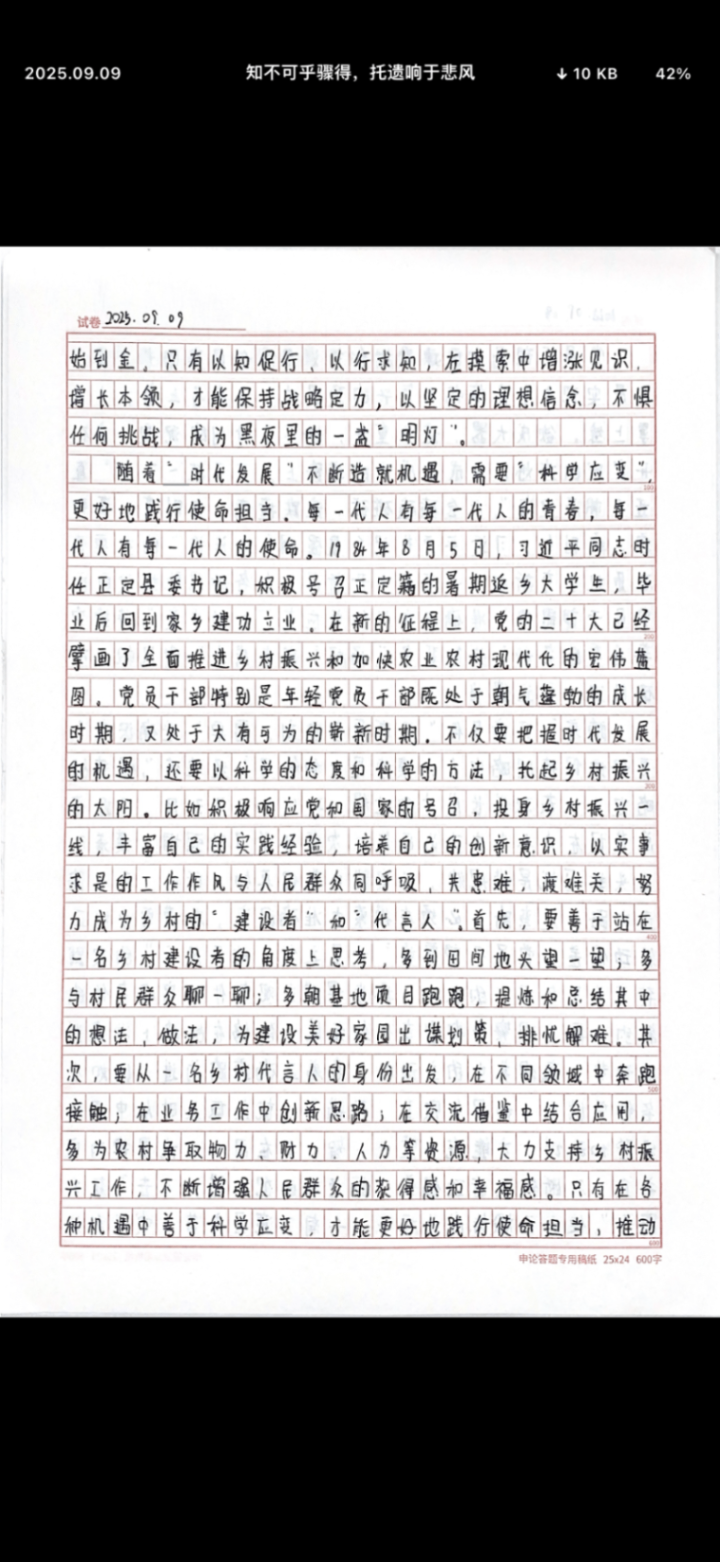 2025.09.09
知不可乎骤得，托遗响于悲风
↓ 10 KB
42%
试卷 2025.09.09
始到金。只有以知促行、以行求知，在摸索中增涨见识、
增长本领，才能保持战略定力，以坚定的理想信念，不惧
任何挑战，成为黑夜里的一盏“明灯”。
随着“时代发展”不断造就机遇，需要“科学应变”，
更好地践行使命担当。每一代人有每一代人的青春，每一
代人有每一代人的使命。1984年8月5日，习近平同志时
任正定县委书记，积极号召正定籍的暑期返乡大学生，毕
业后回到家乡建功立业。在新的征程上，党的二十大已经
擘画了全面推进乡村振兴和加快农业农村现代化的宏伟蓝
图。党员干部特别是年轻党员干部既处于朝气蓬勃的成长
时期，又处于大有可为的崭新时期。不仅要把握时代发展
的机遇，还要以科学的态度和科学的方法，托起乡村振兴
的太阳。比如积极响应党和国家的号召，投身乡村振兴一
线，丰富自己的实践经验，培养自己的创新意识，以实事
求是的工作作风与人民群众同呼吸、共患难、渡难关，努
力成为乡村的“建设者”和“代言人”。首先，要善于站在
一名乡村建设者的角度上思考，多到田间地头望一望；多
与村民群众聊一聊；多朝基地项目跑跑，提炼和总结其中
的想法、做法，为建设美好家园出谋划策、排忧解难。其
次，要从一名乡村代言人的身份出发，在不同领域中奔跑
接触；在业务工作中创新思路；在交流借鉴中结合应用，
多为农村争取物力、财力、人力等资源，大力支持乡村振
兴工作，不断增强人民群众的获得感和幸福感。只有在各
种机遇中善于科学应变，才能更好地践行使命担当，推动
100
200
300
400
500
600
申论答题专用稿纸 25x24 600字